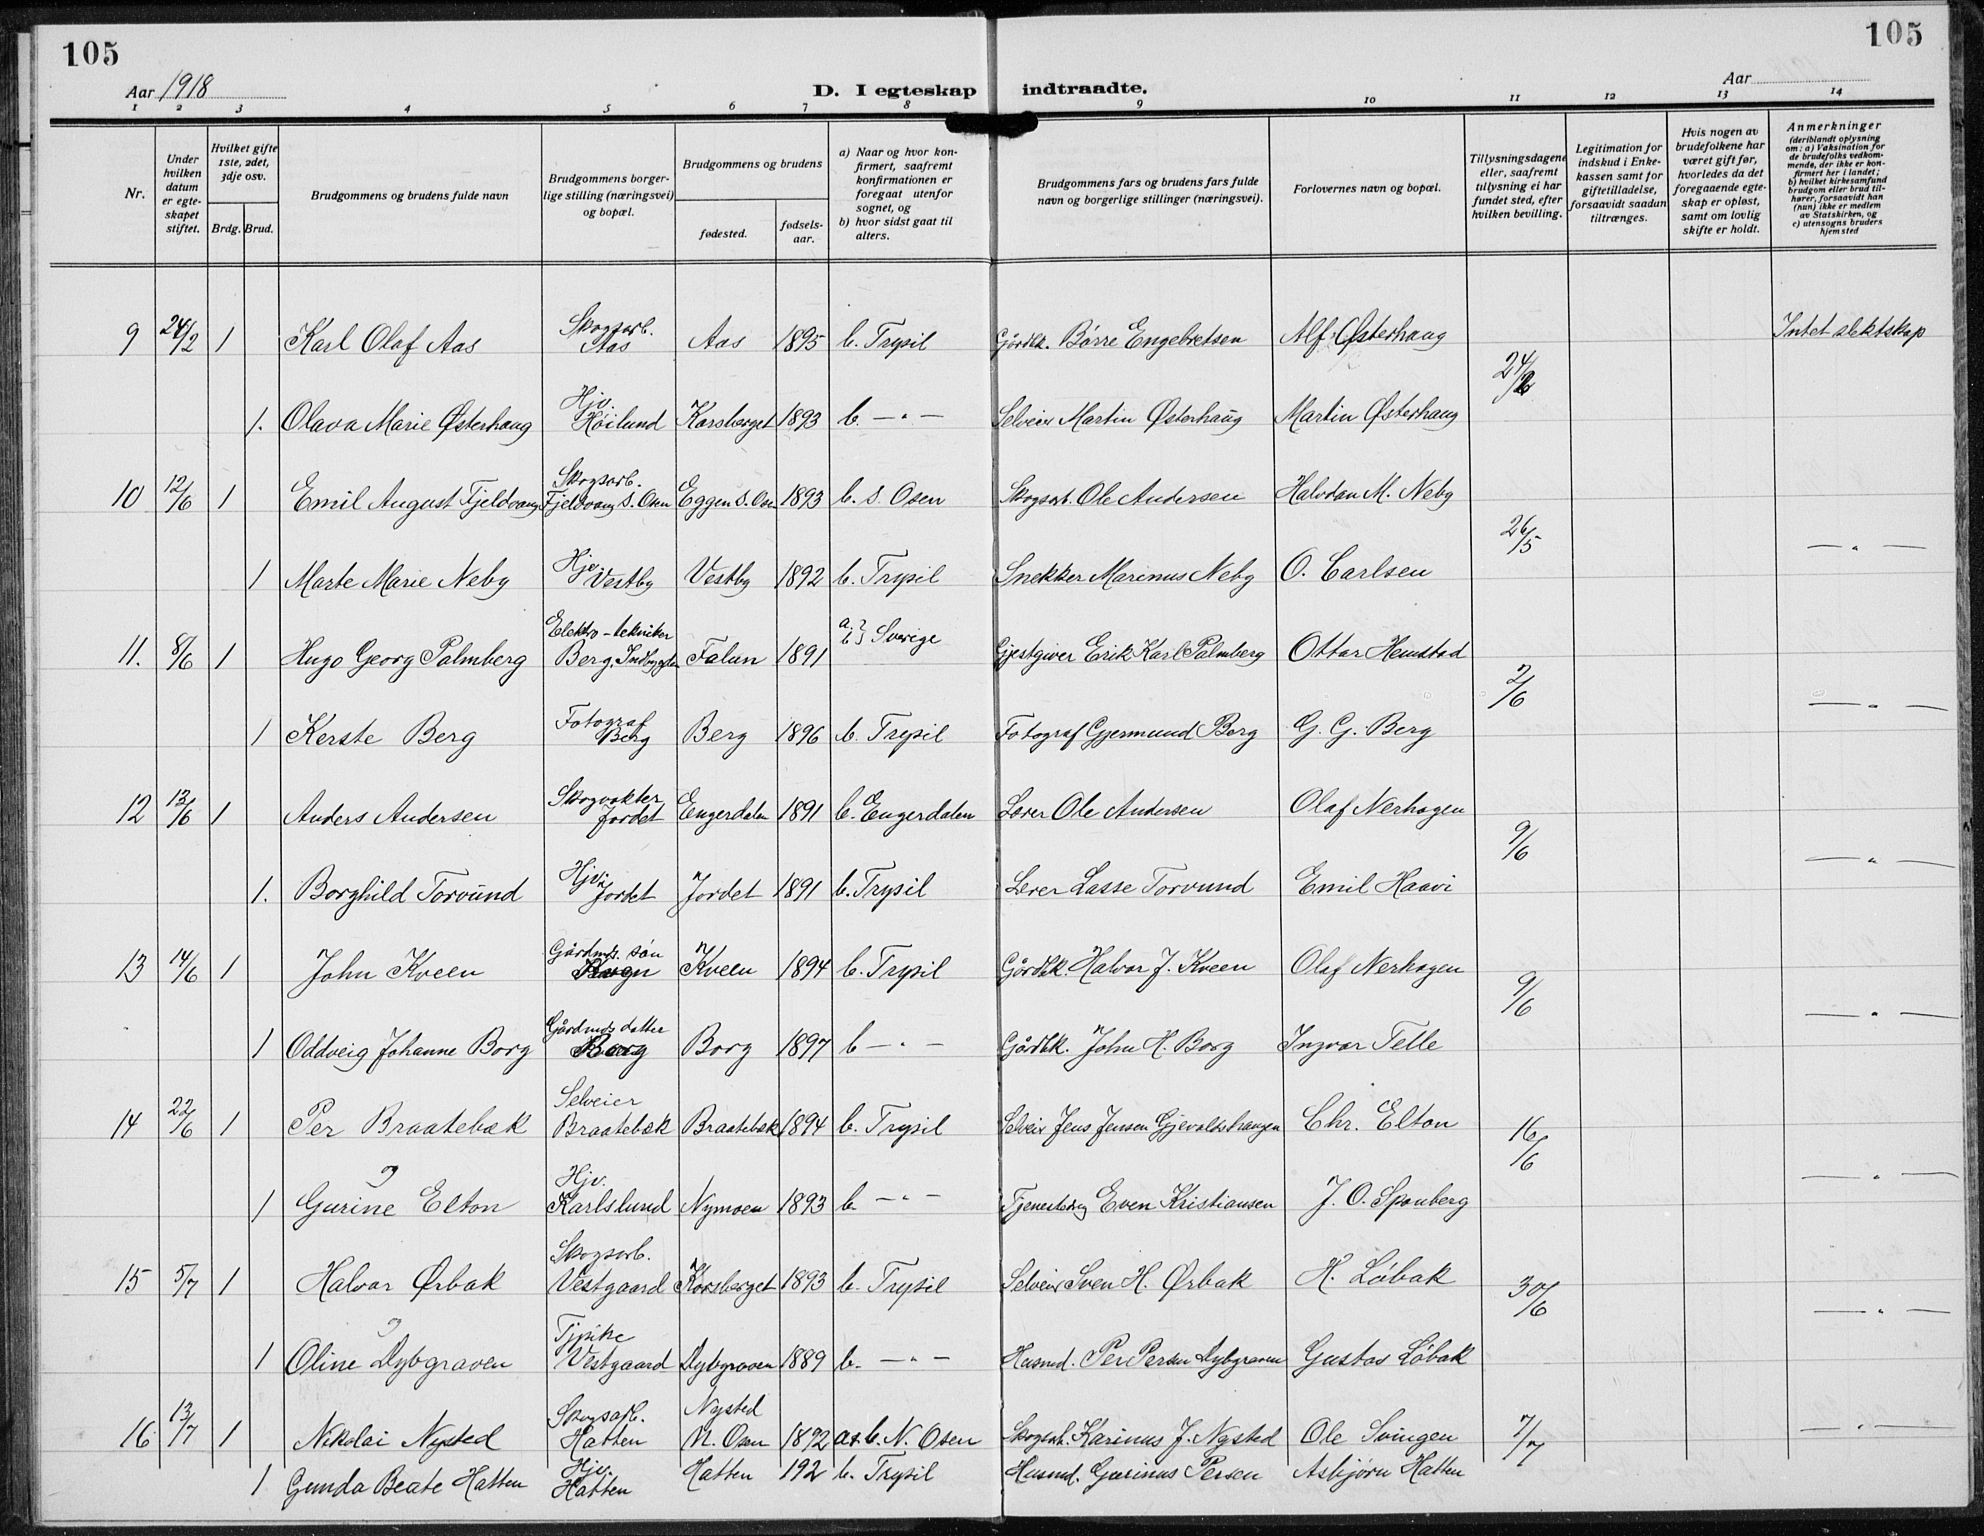 105
105
Aar 1918
D. I egteskap indtraadte.
Aar
1 2 3 4 5 6 7 8 9 10 11 12 13 14
Nr.
Under hvilken datum er egteskapet stiftet.
Hvilket gifte 1ste, 2det, 3dje osv.
Brdg. Brud.
Brudgommens og brudens fulde navn
Brudgommens borgerlige stilling (næringsvei) og bopæl.
Brudgommens og brudens
fødested.
fødselsaar.
a) Naar og hvor konfirmert, saafremt konfirmationen er foregaat utenfor sognet, og
b) hvor sidst gaat til alters.
Brudgommens fars og brudens fars fulde navn og borgerlige stillinger (næringsvei).
Forlovernes navn og bopæl.
Tillysningsdagene eller, saafremt tillysning ei har fundet sted, efter hvilken bevilling.
Legitimation for indskud i Enkekassen samt for giftetilladelse, forsaavidt saadan tiltrænges.
Hvis nogen av brudefolkene har været gift før, hvorledes da det foregaaende egteskap er opløst, samt om lovlig skifte er holdt.
Anmerkninger (deriblandt oplysning om: a) Vaksination for de brudefolks vedkommende, der ikke er konfirmert her i landet; b) hvilket kirkesamfund brudgom eller brud tilhører, forsaavidt han (hun) ikke er medlem av Statskirken, og c) utensogns bruders hjemsted
9 24/2 1 Karl Olaf Aas Skogsarb. Aas Aas 1895 b. Trysil Gårdbk. Børre Engebretsen Alf Østerhaug Intet slektskap
24/2
1. Olava Marie Østerhaug Hjv. Høilund Korsberget 1893 b. — " — Selveier Martin Østerhaug Martin Østerhaug
10 12/6 1 Emil August Fjeldvang Skogsarb. Fjeldvang S. Osen Eggen S. Osen 1893 b. S. Osen Skogsarb. Ole Andersen Halvdan M. Neby
26/5 — " —
1 Marte Marie Neby Hjv. Vestby Vestby 1892 b. Trysil Snekker Marinus Neby O. Carlsen
11. 8/6 1 Hugo Georg Palmberg Elektro-tekniker Berg, Indbygden Falun 1891 a. b. } Sverige Gjestgiver Erik Karl Palmberg Ottar Hemstad
2/6 — " —
1 Kerste Berg Fotograf Berg Berg 1896 b. Trysil Fotograf Gjermund Berg G. G. Berg
12 13/6 1 Anders Andersen Skogvokter Jordet Engerdalen 1891 b. Engerdalen Lærer Ole Andersen Olaf Nerhagen
9/6 — " —
1. Borghild Torvund Hjv. Jordet Jordet 1891 b. Trysil Lærer Lasse Torvund Emil Haavi
13 14/6 1 John Kveen Gårdmds. søn Kveen 1894 b. Trysil Gårdbk. Halvor J. Kveen Olaf Nerhagen
9/6 — " —
1 Oddveig Johanne Borg Gårdmds datter Borg Borg 1897 b — " — Gårdbk. John H. Borg Ingvar Telle
14 22/6 1 Per Braatebæk Selveier Braatebæk Braatebæk 1894 b. Trysil Selveier Jens Jensen Gjevaldshaugen Chr. Elton
16/6 — " —
1 Gurine Elton Hjv. Karlslund Nymoen 1893 b. — " — Even Kristiansen J. O. Sponberg
15 5/7 1 Halvor Ørbak Skogsarb. Vestgaard Korsberget 1893 b. Trysil Selveier Sven H. Ørbak H. Løbak
30/6 — " —
1 Oline Dybgraven Tjpike Vestgaard Dybgraven 1889 b. — " — Husmd. Per Persen Dybgraven Gustav Løbak
16 13/7 1 Nikolai Nysted Skogsarb. Hatten Nysted N. Osen 1892 a & b. N. Osen Skogsarb. Karinus J. Nysted Ole Svingen 7/7 — " —
1 Gunda Beate Hatten Hjv. Hatten Hatten 192 b. Trysil Husmd. Gurinus Persen Asbjørn Hatten